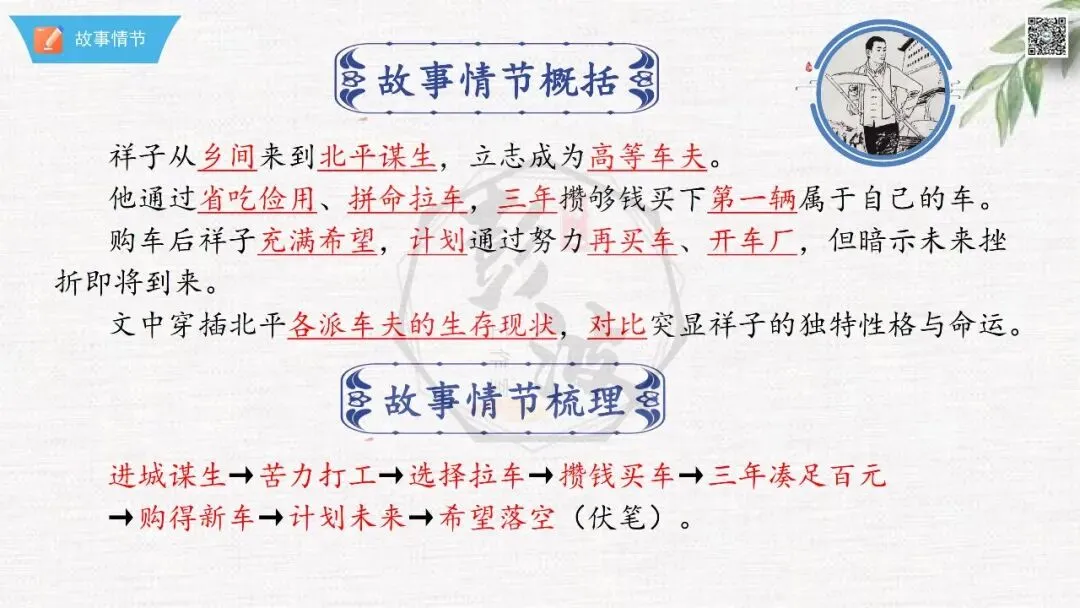 故事情节
故事情节概括
祥子从乡间来到北平谋生，立志成为高等车夫。
他通过省吃俭用、拼命拉车，三年攒够钱买下第一辆属于自己的车。
购车后祥子充满希望，计划通过努力再买车、开车厂，但暗示未来挫
折即将到来。
文中穿插北平各派车夫的生存现状，对比突显祥子的独特性格与命运。
故事情节梳理
进城谋生→苦力打工→选择拉车→攒钱买车→三年凑足百元
→购得新车→计划未来→希望落空（伏笔）。